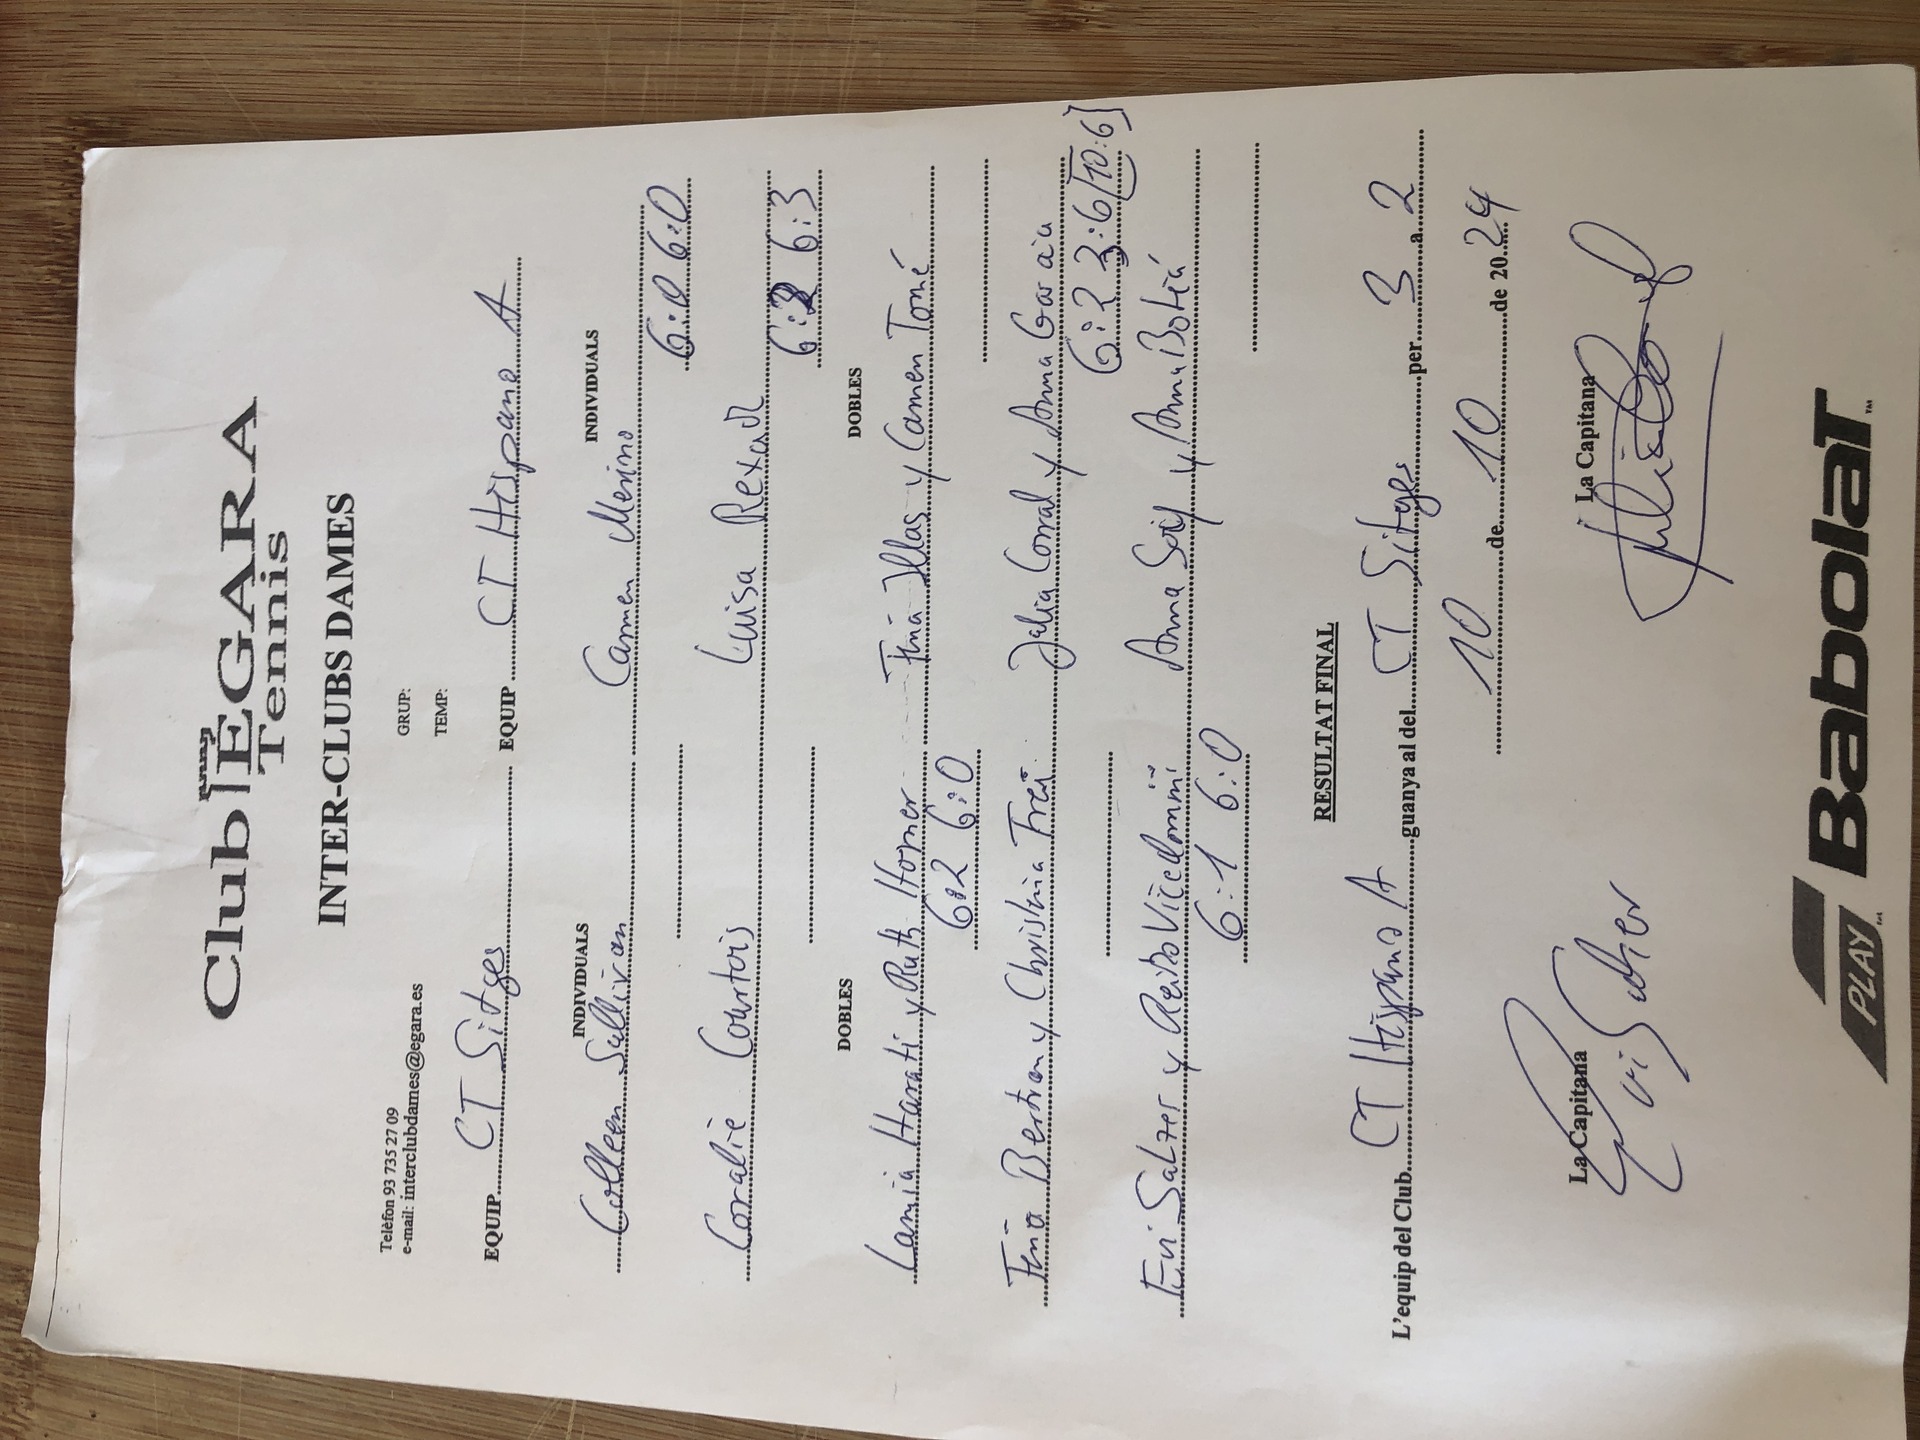 Club EGARA
Tennis
INTER-CLUBS DAMES
Telèfon 93 735 27 09
e-mail: interclubdames@egara.es
GRUP:
TEMP:
EQUIP CT Sitges EQUIP CT Hispano A
INDIVIDUALS INDIVIDUALS
Colleen Sullivan Carmen Merino
6:0 6:0
Coralie Courtois Luisa Rexach
6:3 6:3
DOBLES DOBLES
Lamia Harati y Ruth Horner Fina Illas y Carmen Tomé
6:2 6:0
Fina Bertran y Christina Frei Julia Corral y Anna García
6:2 3:6 [10:6]
Evi Salzer y Vicedomini Anna y Anna Botía
6:1 6:0
RESULTAT FINAL
L'equip del Club CT Hispano A guanya al del CT Sitges per 3 a 2
10 de 10 de 2024
La Capitana La Capitana
PLAY™ Babolat™